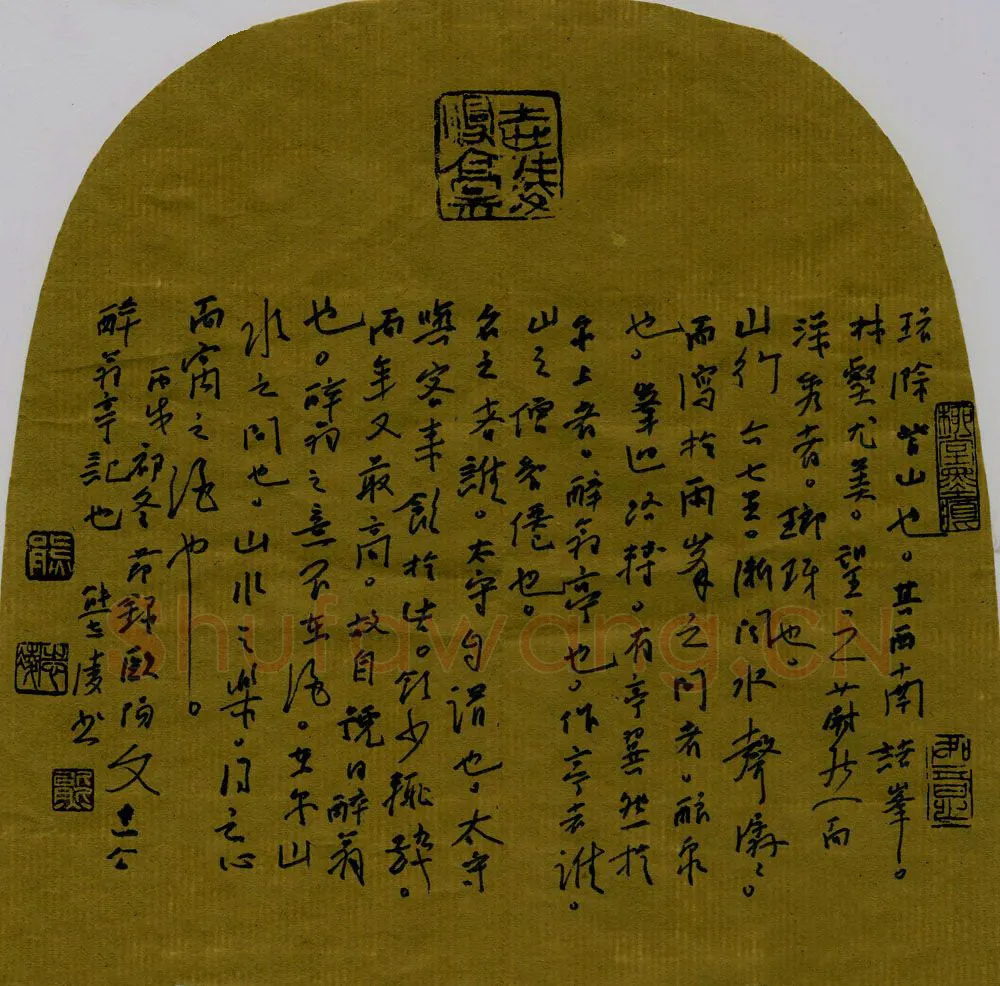 環滁皆山也。其西南諸峯。
林壑尤美。望之蔚然而
深秀者。瑯琊也。
山行六七里。漸闻水聲潺〻。
而瀉於兩峯之间者。釀泉
也。峯迴路轉。有亭翼然於
泉上者。醉翁亭也。作亭者誰。
山之僧智僊也。
名之者誰。太守自謂也。太守
與客来飲於此。飲少輒醉。
而年又最高。故自號曰醉翁
也。醉翁之意不在酒。在乎山
水之间也。山水之樂。得之心
而寓之酒也。
丙戌初冬節錄歐陽文忠公
醉翁亭記也 熊凌书
Shufawang.CN